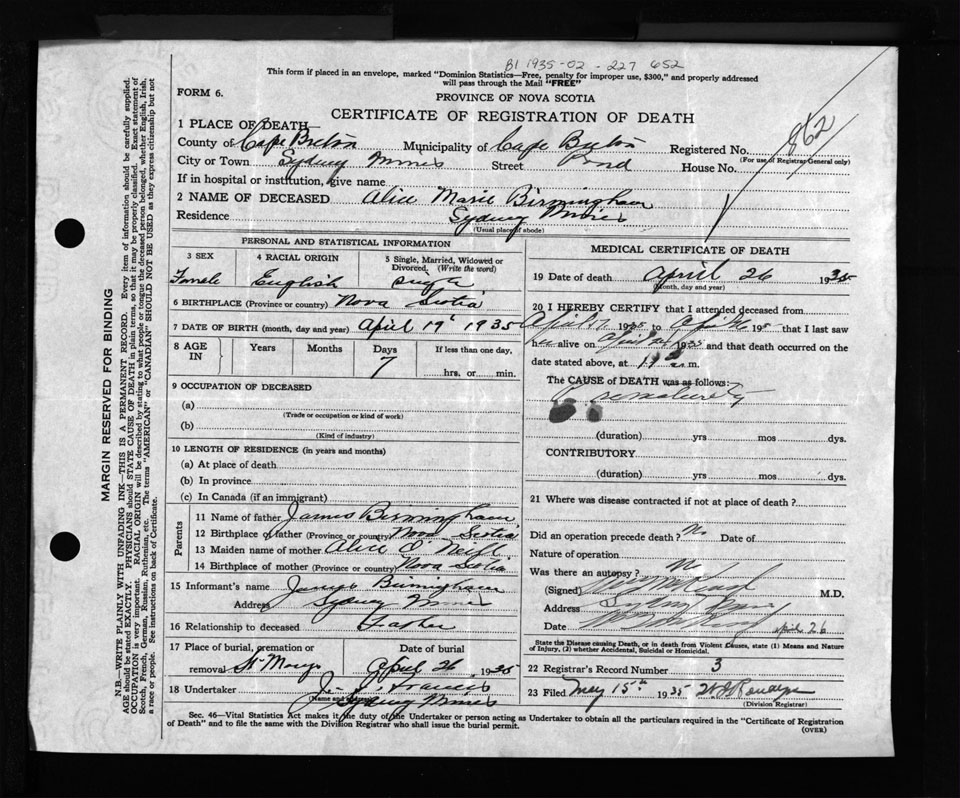 B1 1935-02-227 652
This form if placed in an envelope, marked "Dominion Statistics—Free, penalty for improper use, $300," and properly addressed
will pass through the Mail "FREE"
FORM 6.
PROVINCE OF NOVA SCOTIA
CERTIFICATE OF REGISTRATION OF DEATH
862
1 PLACE OF DEATH
County of Cape Breton Municipality of Cape Breton Registered No.
(For use of Registrar General only)
City or Town Sydney Mines Street Pond House No.
If in hospital or institution, give name
2 NAME OF DECEASED Alice Marie Birmingham
Residence Sydney Mines
(Usual place of abode)
PERSONAL AND STATISTICAL INFORMATION
3 SEX 4 RACIAL ORIGIN 5 Single, Married, Widowed or Divorced. (Write the word)
Female English Single
6 BIRTHPLACE (Province or country) Nova Scotia
7 DATE OF BIRTH (month, day and year) April 19 1935
8 AGE IN Years Months Days If less than one day,
7 hrs. or min.
9 OCCUPATION OF DECEASED
(a)
(Trade or occupation or kind of work)
(b)
(Kind of industry)
10 LENGTH OF RESIDENCE (in years and months)
(a) At place of death
(b) In province
(c) In Canada (if an immigrant)
Parents
11 Name of father James Birmingham
12 Birthplace of father (Province or country) Nova Scotia
13 Maiden name of mother Alice O'Neill
14 Birthplace of mother (Province or country) Nova Scotia
15 Informant's name James Birmingham
Address Sydney Mines
16 Relationship to deceased Father
17 Place of burial, cremation or removal St Marys Date of burial April 26, 1935
18 Undertaker J. J. Francis
(Name and address)
Sydney Mines
MEDICAL CERTIFICATE OF DEATH
19 Date of death April 26 1935
(Month, day and year)
20 I HEREBY CERTIFY that I attended deceased from
April 1935 to April 193 that I last saw
her alive on April 1935 and that death occurred on the
date stated above, at m.
The CAUSE of DEATH was as follows:
Prematurity
(duration) yrs mos dys.
CONTRIBUTORY
(duration) yrs mos dys.
21 Where was disease contracted if not at place of death?
Did an operation precede death? No Date of
Nature of operation
Was there an autopsy? No
(Signed) M.D.
Address Sydney Mines
Date April 26
State the Disease causing Death, or in death from Violent Causes, state (1) Means and Nature
of Injury, (2) whether Accidental, Suicidal or Homicidal.
22 Registrar's Record Number 3
23 Filed May 15th 1935
(Division Registrar)
Sec. 46—Vital Statistics Act makes it the duty of the Undertaker or person acting as Undertaker to obtain all the particulars required in the "Certificate of Registration
of Death" and to file the same with the Division Registrar who shall issue the burial permit.
(OVER)
MARGIN RESERVED FOR BINDING
N.B.—WRITE PLAINLY WITH UNFADING INK—THIS IS A PERMANENT RECORD. Every item of information should be carefully supplied.
AGE should be stated EXACTLY. PHYSICIANS should STATE CAUSE OF DEATH in plain terms, so that it may be properly classified. Exact statement of
OCCUPATION is very important. RACIAL ORIGIN will be described by stating to what people or tongue the deceased person belonged, whether English, Irish,
Scotch, French, German, Russian, Ruthenian, etc. The terms "AMERICAN" or "CANADIAN" SHOULD NOT BE USED as they express citizenship but not
a race or people. See instructions on back of Certificate.